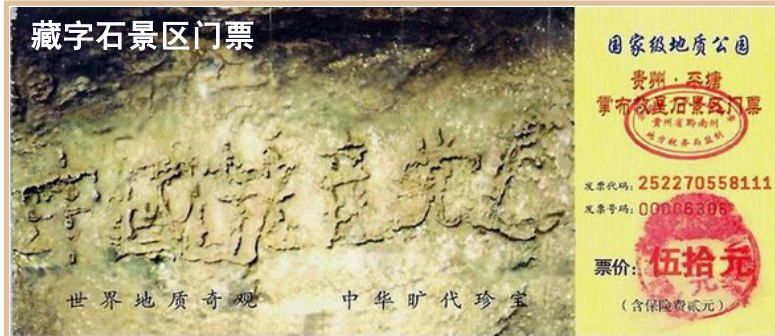 藏字石景区门票
中國共产党亡
世界地质奇观 中华旷代珍宝
国家级地质公园
贵州·平塘
掌布救星石景区门票
贵州省黔南州
地方税务局监制
发票代码: 252270558111
发票号码: 00006306
票价: 伍拾元
(含保险费贰元)